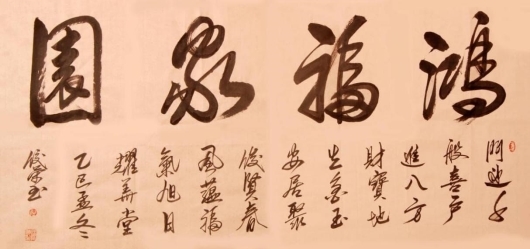 鴻福家園
門迎千
般喜戶
進八方
財寶地
生金玉
安居聚
俊賢春
風蘊福
氣旭日
耀華堂
乙巳孟冬